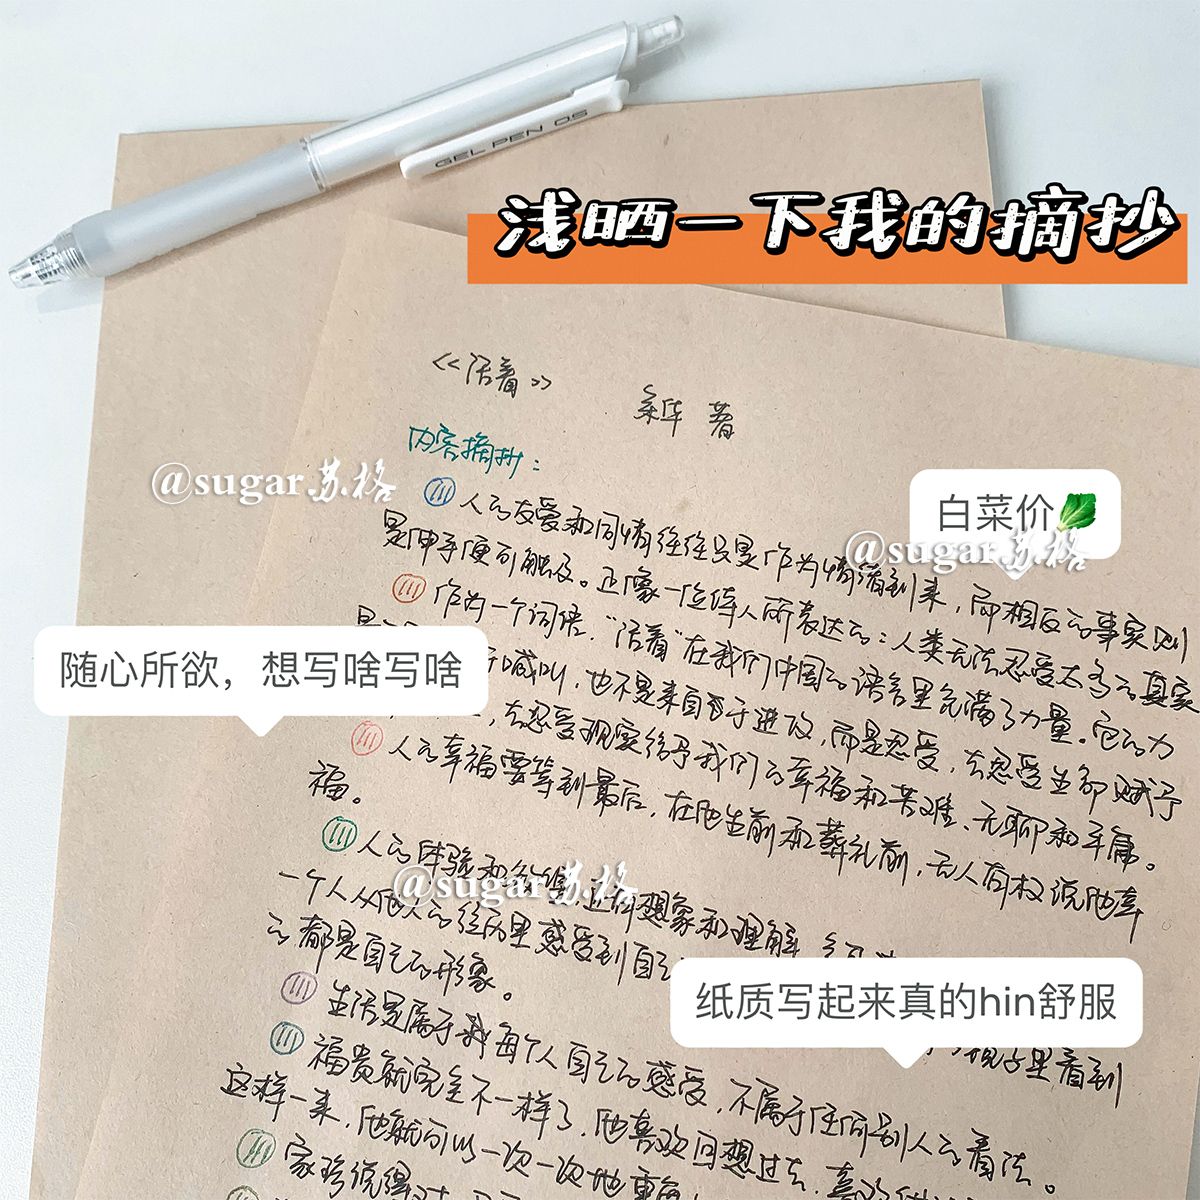 GEL PEN 0.5
浅晒一下我的摘抄
<<活着>> 余华 著
内容摘抄：
@sugar苏格
白菜价🥬
@sugar苏格
人的友爱和同情往往只是作为情绪到来，而相反的事实则
是伸手便可触及。正像一位伟人所表达的：人类无法忍受太多的真实
作为一个词语，“活着”在我们中国的语言里充满了力量。它的力
随心所欲，想写啥写啥
喊叫，也不是来自于进攻，而是忍受，去忍受生命赋予
，去忍受现实给予我们的幸福和苦难、无聊和平庸。
人的幸福要等到最后，在他生前和葬礼前，无人有权说他幸
福。
人的体验和 想象和理解
@sugar苏格
一个人从他人的经历里感受到自己
纸质写起来真的hin舒服
镜子里看到
的都是自己的形象。
生活是属于我每个人自己的感受，不属于任何别人的看法。
福贵就完全不一样了，他喜欢回想过去，喜欢
这样一来，他就可以一次一次地重
家珍说得对